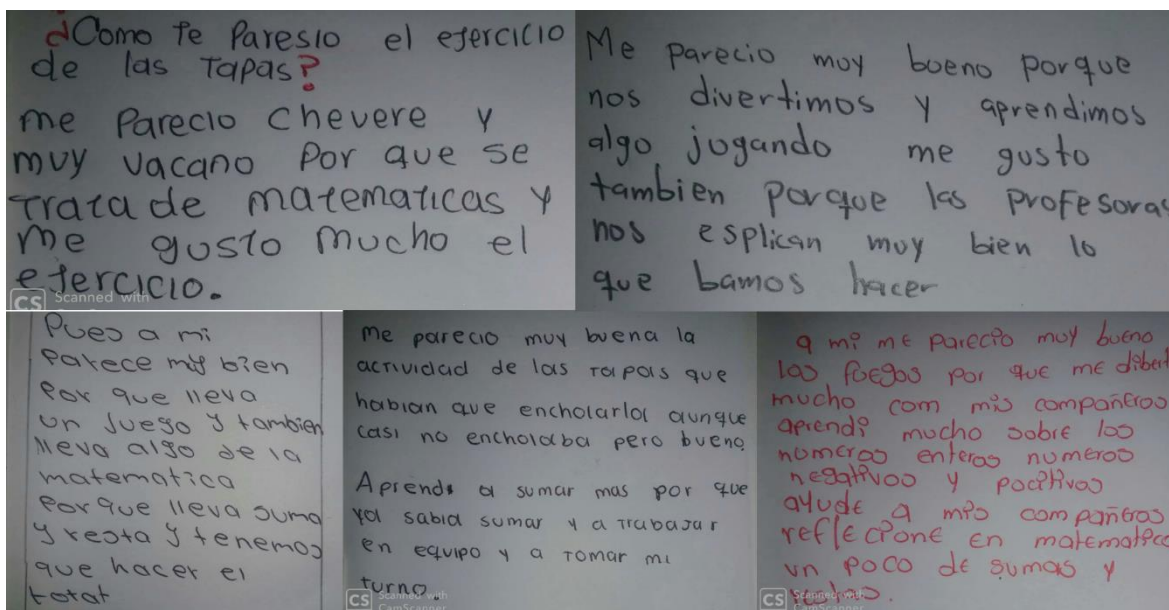 ¿Como te Paresio el ejercicio
de las Tapas?
me Parecio chevere y
muy vacano Por que se
Trata de matematicas y
me gusto mucho el
ejercicio.
CS Scanned with
Me parecio muy bueno porque
nos divertimos y aprendimos
algo jugando me gusto
tambien porque las profesoras
nos esplican muy bien lo
que bamos hacer
Pues a mi
parece muy bien
por que lleva
un juego y tambien
lleva algo de la
matematica
por que lleva suma
y resta y tenemos
que hacer el
total
me parecio muy buena la
actividad de las tapas que
habian que encholarla aunque
casi no encholaba pero bueno.
Aprendi a sumar mas por que
ya sabia sumar y a trabajar
en equipo y a tomar mi
turno.
CS Scanned with
CamScanner
a mi me parecio muy bueno
los juegos por que me dibert
mucho com mis compañeros
aprendi mucho sobre los
numeros enteros numeros
negativos y pocitivos
ayude a mis compañeros
reflecione en matematica
un poco de sumas y
restas.
CS Scanned with
CamScanner